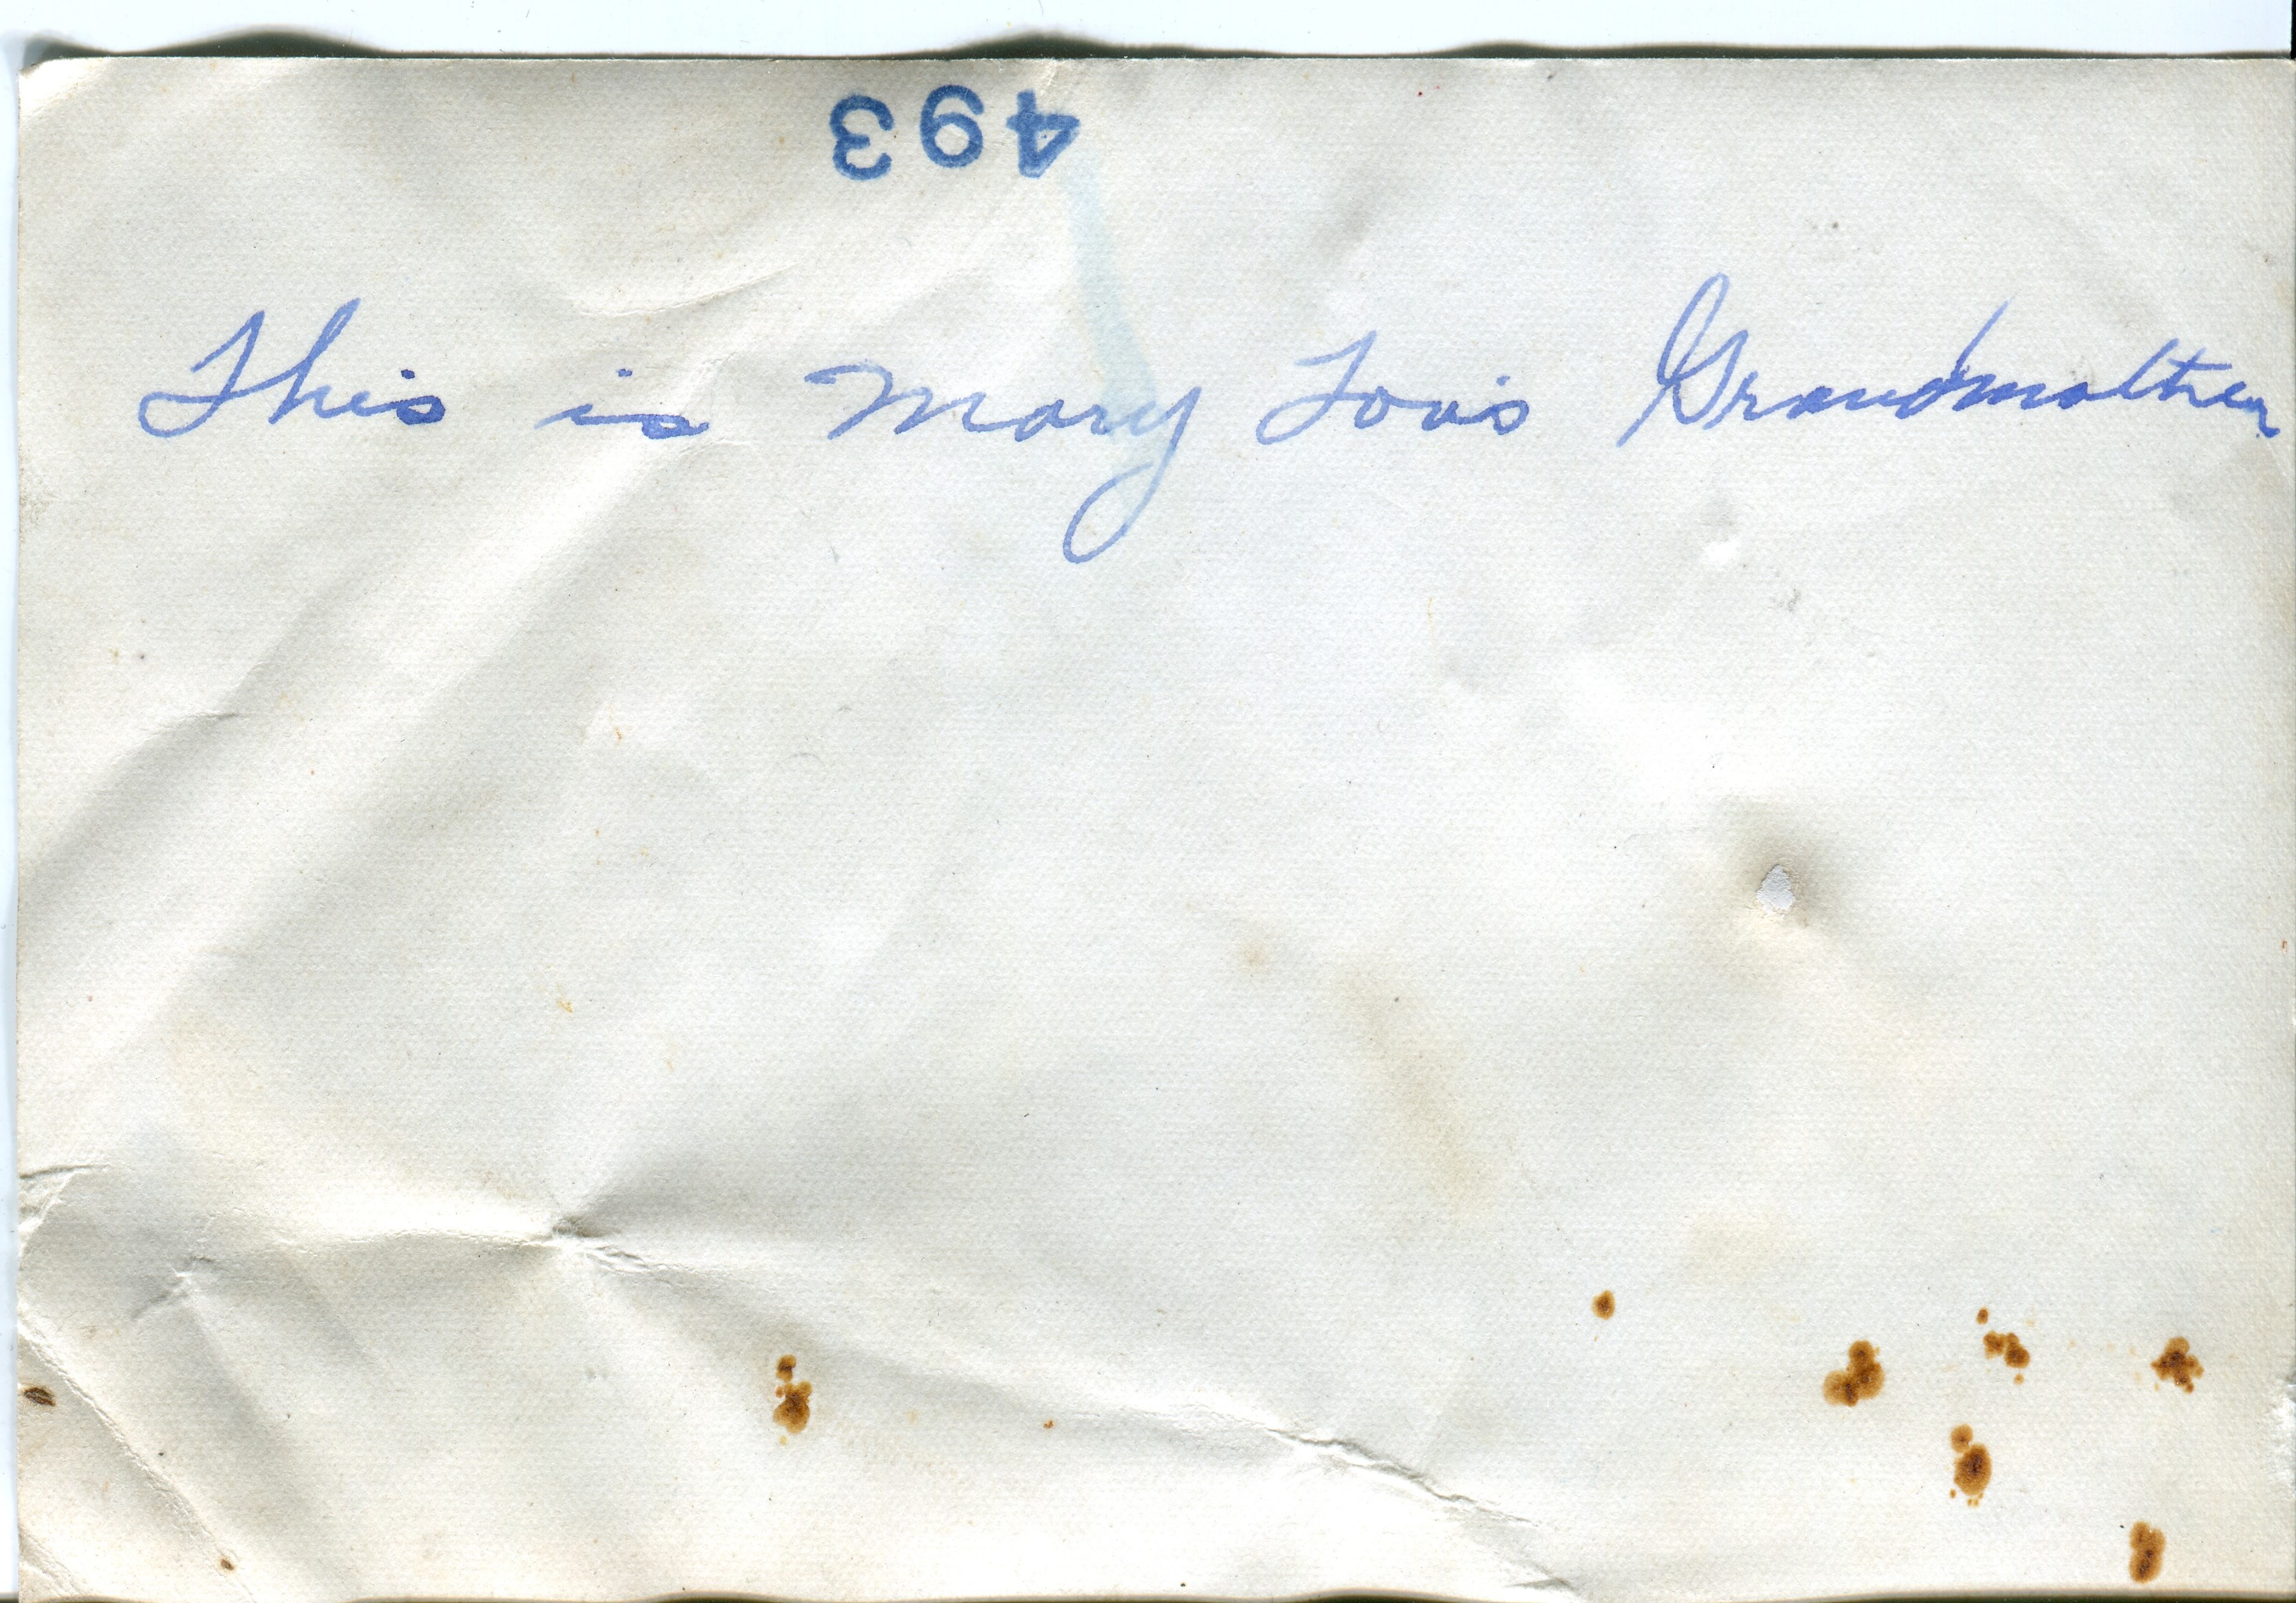 493
This is Mary Lou's Grandmother